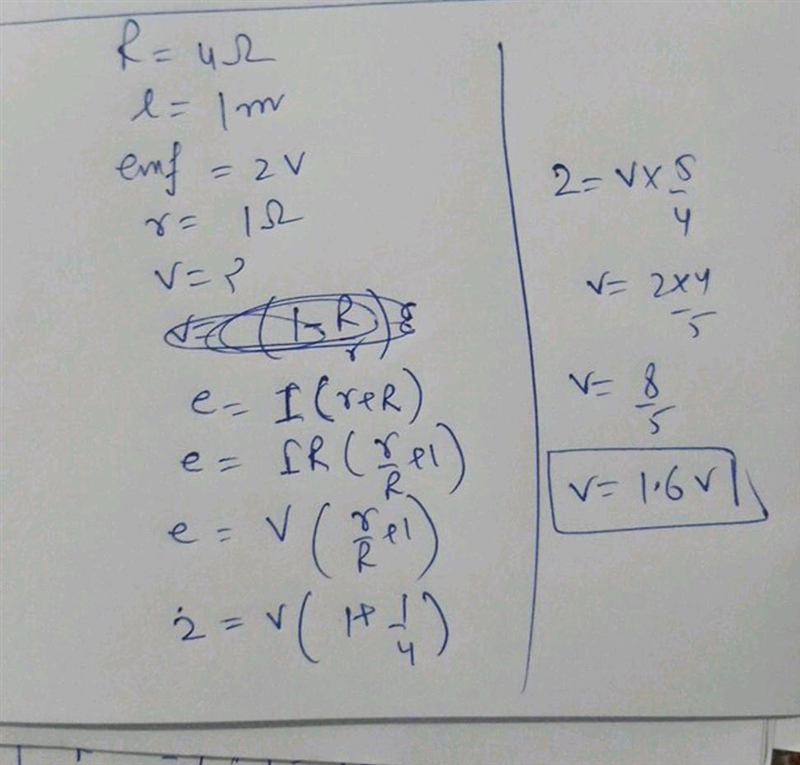 R = 4Ω
l = 1m
emf = 2V
r = 1Ω
V = ?
e = I(r+R)
e = IR(r/R+1)
e = V(r/R+1)
2 = V(1+1/4)
2 = V×5/4
V = 2×4/5
V = 8/5
V = 1.6V